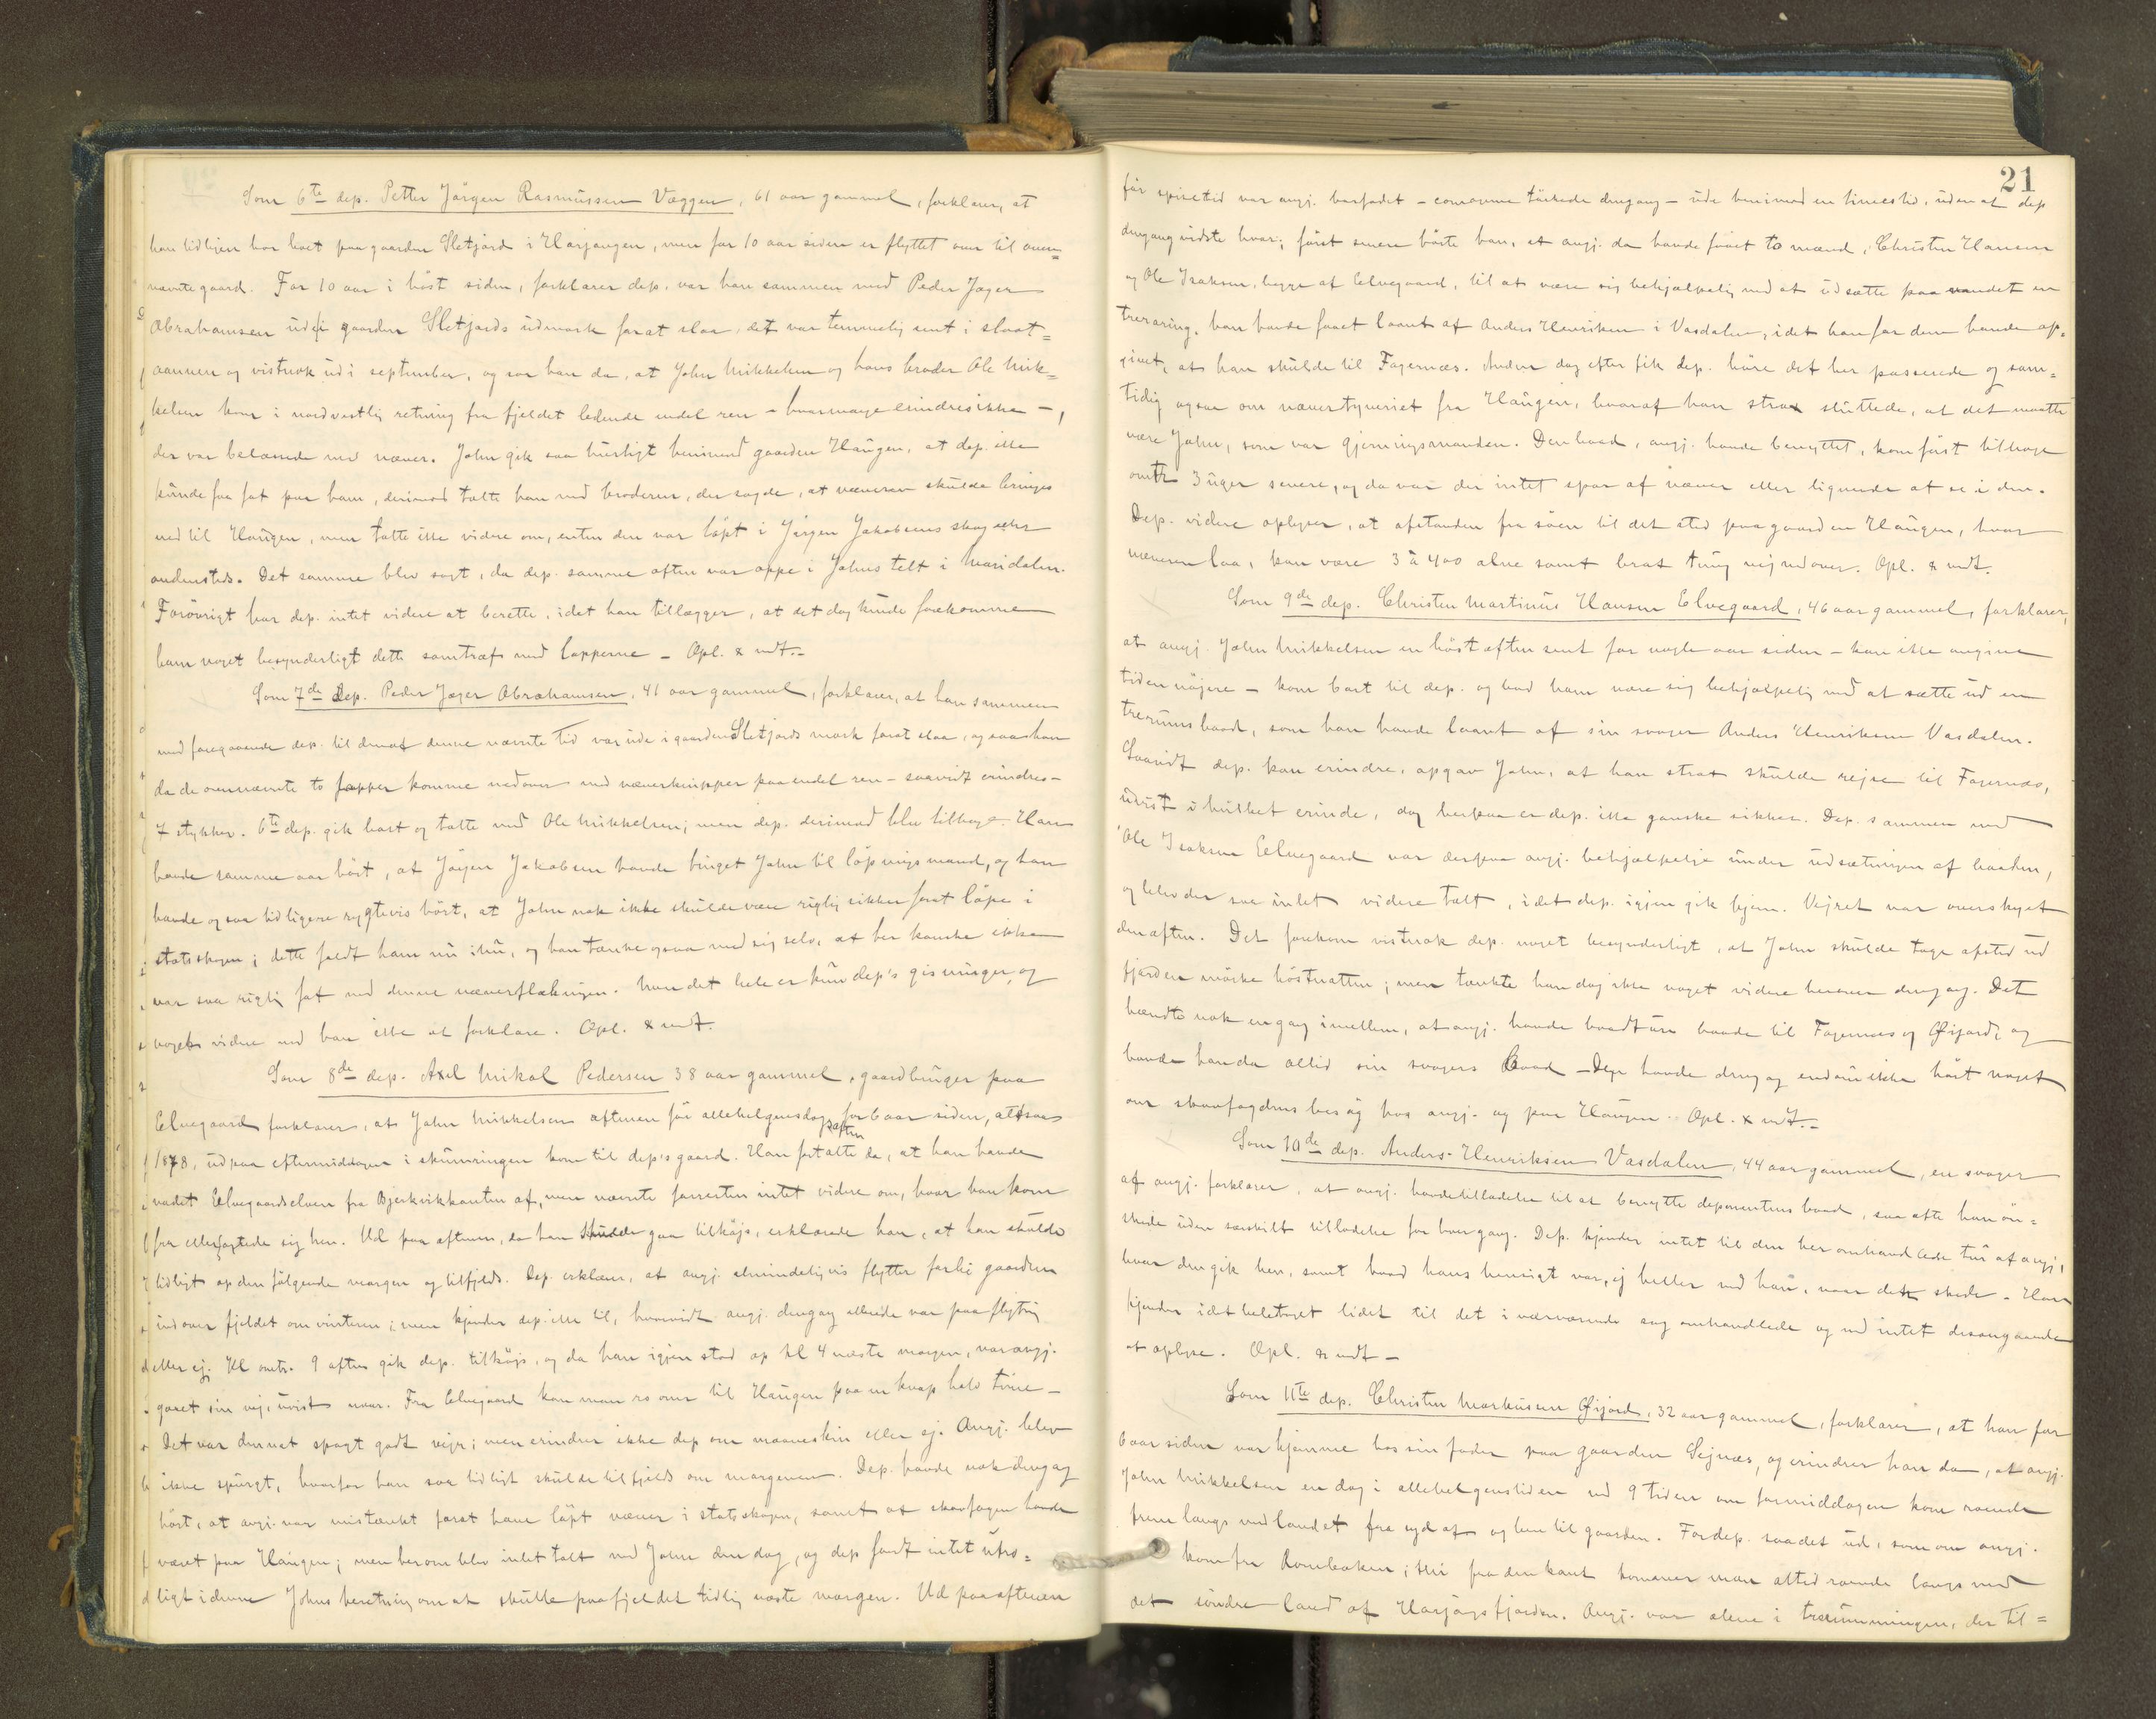 Som 6te dep. Petter Jørgen Rasmussen Væggen, 61 aar gammel, forklarer, at
han tidligere har boet paa gaarden Sletjord i Harjangen, men for 10 aar siden er flyttet over til oven=
nævnte gaard. For 10 aar i høst siden, forklarer dep. var han sammen med Peder Jæger
Abrahamsen ude i gaarden Sletjords udmark forat slaa, det var temmelig sent i slaat=
aannen og vistnok ud i september, og saa han da, at John Mikkelsen og hans broder Ole Mik=
kelsen kom i nordvestlig retning fra fjeldet ledende endel ren – hvormange erindres ikke –,
der var belæssede med næver. John gik saa hurtigt henimod gaarden Haugen, at dep. ikke
kunde faa fat paa ham, derimod talte han med broderen, der sagde, at næveren skulde bringes
ned til Haugen, men talte ikke videre om, enten den var løpt i Jørgen Jakobsens skog eller
andensteds. Det samme blev sagt, da dep. samme aften var oppe i Johns telt i Maridalen.
Forøvrigt har dep. intet videre at berette, idet han tillægger, at det dog kunde forekomme
ham noget besynderligt dette samtræf med lapperne – Opl. & vedt. –
Som 7de dep. Peder Jæger Abrahamsen, 41 aar gammel, forklarer, at han sammen
med foregaaende dep. til denaf denne nævnte tid var ude i gaarden Sletjords mark forat slaa, og saa han
da de ovennævnte to lapper komme nedover med næverknipper paa endel ren – saavidt erindres –
7 stykker. 6te dep. gik bort og talte med Ole Mikkelsen; men dep. derimod blev tilbage. Han
havde samme aar hørt, at Jørgen Jakobsen havde tinget John til løpningsmand, og han
havde ogsaa tidligere rygtevis hørt, at John nok ikke skulde være rigtig sikker forat løpe i
statsskogen; dette faldt ham nu ind, og han tænkte ogsaa med sig selv, at her kanske ikke
var saa rigtig fat med denne næverflækningen. Men det hele er kun dep's gisninger, og
noget videre ved han ikke at forklare. Opl. & vedt.
Som 8de dep. Axel Mikal Pedersen 38 aar gammel, gaardbruger paa
Elvegaard forklarer, at John Mikkelsen aftenen før allehelgensdagsaften for 6 aar siden, altsaa
1878, udpaa eftermiddagen i skumringen kom til dep's gaard. Han fortalte da, at han havde
vadet Elvegaardselven fra Bjerkvikkanten af, men nævnte forresten intet videre om, hvor han kom
fra eller agtede sig hen. Ud paa aftenen, da han skulde gaa tilkøjs, erklærede han, at han skulde
tidligt op den følgende morgen og tilfjelds. Dep. erklærer, at angj. almindeligvis flytter forbi gaarden
indover fjeldet om vinteren; men kjender dep. ikke til, hvorvidt angj. dengang allerede var paa flytning
eller ej. Kl omtr. 9 aften gik dep. tilkøjs, og da han igjen stod op kl 4 næste morgen, var angj.
gaaet sin vej, uvist naar. Fra Elvegaard kan man ro over til Haugen paa en knap halv time –
Det var den nat spagt godt vejr; men erindrer ikke dep om maaneskin eller ej. Angj. blev
ikke spurgt, hvorfor han saa tidligt skulde tilfjelds om morgenen. Dep. havde nok dengang
hørt, at angj. var mistænkt forat have løpt næver i statsskogen, samt at skovfogen havde
været paa Haugen; men herom blev intet talt med John den dag, og dep fandt intet utro=
ligt i denne Johns beretning om at skulle paa fjeldet tidlig næste morgen. Ud paa aftenen
21
før spisetid var angj. barfodet – komagerne tørkede dengang – ude henimod en timestid, uden at dep
dengang vidste hvor; først senere hørte han, at angj. da havde faaet to mænd, Christen Hansen
og Ole Isaksen, begge af Elvegaard, til at være sig behjælpelig med at udsætte paa vandet en
treraring, han havde faaet laant af Anders Henriksen i Vasdalen, idet han for dem havde op=
givet, at han skulde til Fagernæs. Anden dag efter fik dep. høre det her passerede og sam=
tidig ogsaa om nævertyveriet fra Haugen, hvoraf han strax sluttede, at det maatte
være John, som var gjerningsmanden. Den baad, angj. havde benyttet, kom først tilbage
omtr 3 uger senere, og da var der intet spor af næver eller lignende at se i den.
Dep. videre oplyser, at afstanden fra søen til det sted paa gaarden Haugen, hvor
næveren laa, kan være 3 à 400 alne samt brat tung vej nedover. Opl. & vedt.
Som 9de dep. Christen Martinus Hansen Elvegaard, 46 aar gammel, forklarer,
at angj. John Mikkelsen en høstaften sent for nogle aar siden – kan ikke angive
tiden nøjere – kom bort til dep. og bad ham være sig behjælpelig med at sætte ud en
trerumsbaad, som han havde laant af sin svoger Anders Henriksen Vasdalen.
Saavidt dep. kan erindre, opgav John, at han strax skulde rejse til Fagernæs,
uvist i hvilket erinde, dog herpaa er dep. ikke ganske sikker. Dep. sammen med
Ole Isaksen Elvegaard var derpaa angj. behjælpelige under udsætningen af baaden,
og blev der saa intet videre talt, idet dep. igjen gik hjem. Vejret var overskyet
den aften. Det forekom vistnok dep. noget besynderligt, at John skulde tage afsted ud
fjorden mørke høstnatten; men tænkte han dog ikke noget videre herover dengang. Det
hændte nok engang imellem, at angj. havde baadtur baade til Fagernæs og Øijord, og
havde han da altid sin svogers baad – Dep. havde dengang endnu ikke hørt noget
om skovfogdens besøg hos angj. og paa Haugen. Opl. & vedt. –
Som 10de dep. Anders Henriksen Vasdalen, 44 aar gammel, en svoger
af angj. forklarer, at angj. havde tilladelse til at benytte deponentens baad, saa ofte han øn=
skede uden særskilt tilladelse for hver gang. Dep. kjender intet til den her omhandlede tur af angj.,
hvor den gik hen, samt hvad hans hensigt var, ej heller ved han, naar dette skede. Han
kjender idethele taget lidet til det i nærværende sag omhandlede og ved intet desangaaende
at oplyse. Opl. & vedt –
Som 11te dep. Christen Markusen Øijord, 32 aar gammel, forklarer, at han for
6 aar siden var hjemme hos sin fader paa gaarden Sejnæs, og erindrer han da, at angj.
John Mikkelsen en dag i allehelgenstiden ved 9 tiden om formiddagen kom roende
frem langs med landet fra syd af og hen til gaarden. For dep. saa det ud, som om angj.
kom fra Rombaken; thi fra den kant kommer man altid roende langs med
det søndre land af Harjangsfjorden. Angj. var alene i trerumingen, der til=